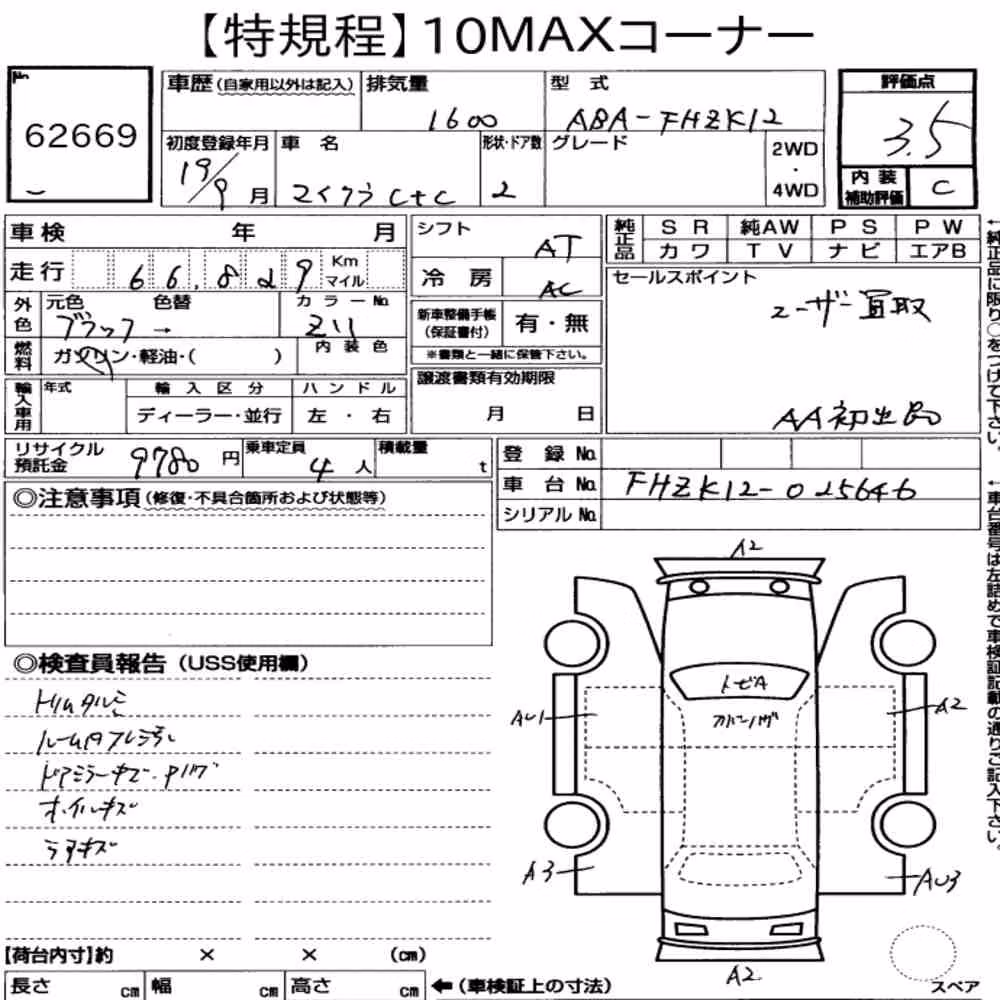 【特規程】10MAXコーナー
No.
62669
車歴(自家用以外は記入)
排気量
1600
型 式
ABA-FHZK12
評価点
3.5
初度登録年月
19/9月
車 名
マイクラ C+C
形状・ドア数
2
グレード
2WD
・
4WD
内装
補助評価
C
車検 年 月
走行 66,829 Km
マイル
外色
元色 色替
ブラック →
カラーNo.
Z11
燃料
ガソリン・軽油・( )
内 装 色
輸入車用
年式
輸 入 区 分
ディーラー・並行
ハ ン ド ル
左 ・ 右
シフト
AT
冷 房
AC
新車整備手帳
(保証書付)
有・無
※書類と一緒に保管下さい。
譲渡書類有効期限
月 日
純正品
SR 純AW PS PW
カワ TV ナビ エアB
セールスポイント
ユーザー買取
AA初出品
←純正品に限り○をつけて下さい。
リサイクル
預託金
9780 円
乗車定員
4 人
積載量
t
登 録 No.
車 台 No. FHZK12-025646
シリアル No.
←車台番号は左詰めで車検証記載の通りご記入下さい。
◎注意事項(修復・不具合箇所および状態等)
◎検査員報告(USS使用欄)
トリムタルミ
ドアミラーキズ・
ホイルキズ
A2
トビA
AU1
A2
A3
AU3
A2
【荷台内寸】約 × × (cm)
長さ cm 幅 cm 高さ cm ←(車検証上の寸法)
スペア